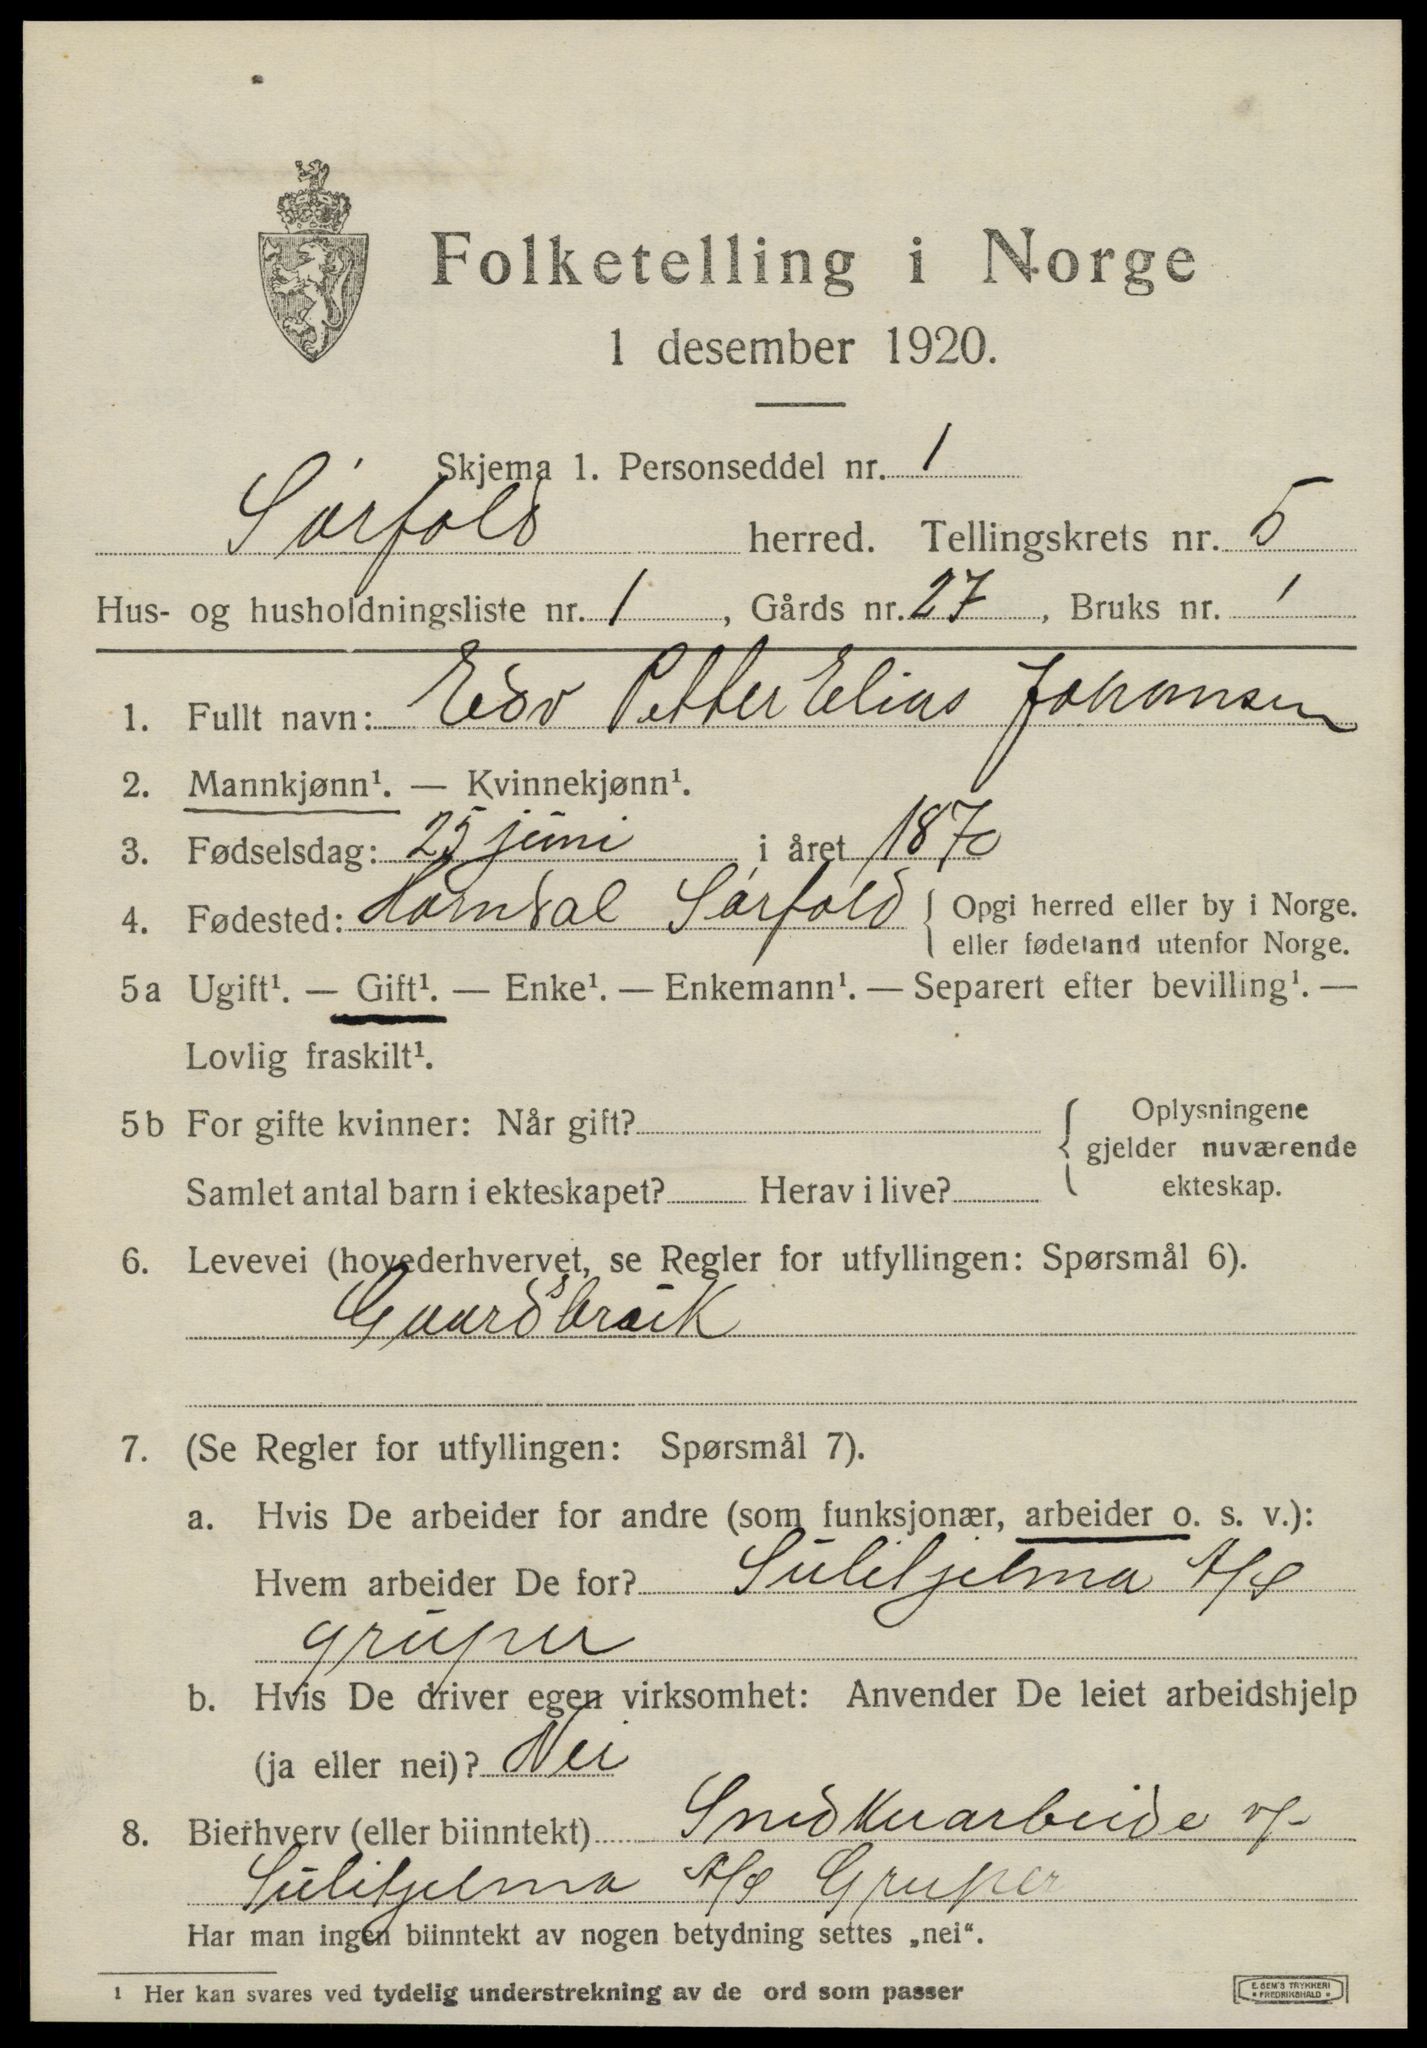 Folketelling i Norge
1 desember 1920.
Skjema 1. Personseddel nr. 1
Sørfold herred. Tellingskrets nr. 5
Hus- og husholdningsliste nr. 1, Gårds nr. 27, Bruks nr. 1
1. Fullt navn: Edv Petter Elias Johansen
2. Mannkjønn¹. — Kvinnekjønn¹.
3. Fødselsdag: 25 juni i året 1870
4. Fødested: Horndal Sørfold { Opgi herred eller by i Norge.
eller fødeland utenfor Norge.
5a Ugift¹. — Gift¹. — Enke¹. — Enkemann¹. — Separert efter bevilling¹. —
Lovlig fraskilt¹.
5b For gifte kvinner: Når gift? { Oplysningene
gjelder nuværende
Samlet antal barn i ekteskapet? Herav i live? ekteskap.
6. Levevei (hovederhvervet, se Regler for utfyllingen: Spørsmål 6).
Gaardsbruk
7. (Se Regler for utfyllingen: Spørsmål 7).
a. Hvis De arbeider for andre (som funksjonær, arbeider o. s. v.):
Hvem arbeider De for? Sulitjelma A/S
gruper
b. Hvis De driver egen virksomhet: Anvender De leiet arbeidshjelp
(ja eller nei)? Nei
8. Bierhverv (eller biinntekt) Snedkerarbeide v/
Sulitjelma A/S Gruper
Har man ingen biinntekt av nogen betydning settes „nei“.
¹ Her kan svares ved tydelig understrekning av de ord som passer
E. SEM'S TRYKKERI
* FREDRIKSHALD *